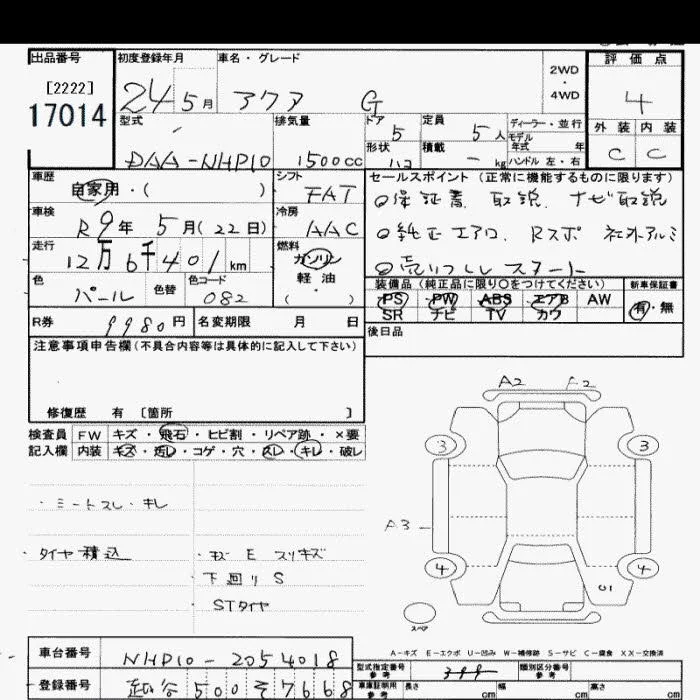 出品番号 初度登録年月 車名・グレード 評価点
[2222]
17014
24 5月 アクア G
2WD
・
4WD
4
型式 排気量 ドア 5 定員 5人 ディーラー・並行 外装 内装
モデル
年式 年
DAA-NHP10 1500cc 形状 ハコ 積載 - kg ハンドル 左・右 C C
車歴 自家用・( ) シフト FAT セールスポイント (正常に機能するものに限ります)
保証書、取説、ナビ取説
車検 R9年 5月(22日) 冷房 AAC
純正エアロ、Rスポ 社外アルミ
走行 12万6千401km 燃料 ガソリン
軽油
( )
売りつくしスタート
色 パール 色替 色コード 082
装備品(純正品に限り○をつけてください) 新車保証書
PS PW ABS エアB AW 有・無
SR ナビ TV カワ
R券 9980円 名変期限 月 日
後日品
注意事項申告欄(不具合内容等は具体的に記入して下さい)
修復歴 有 [箇所 ]
検査員 FW キズ・飛石・ヒビ割・リペア跡・×要
記入欄 内装 キズ・汚レ・コゲ・穴・スレ・キレ・破レ
A2 A2
3 3
・ミートスレ・キレ
A3
・タイヤ積込 ・キズ E スリキズ
下回り S
STタイヤ
4 4
U1
スペア
A-キズ E-エクボ U-凹み W-補修跡 S-サビ C-腐食 XX-交換済
車台番号 NHP10-2054018
型式指定番号 参考 類別区分番号 参考
登録番号 越谷 500 そ 7668
車庫証明用 参考 長さ cm 幅 cm 高さ cm